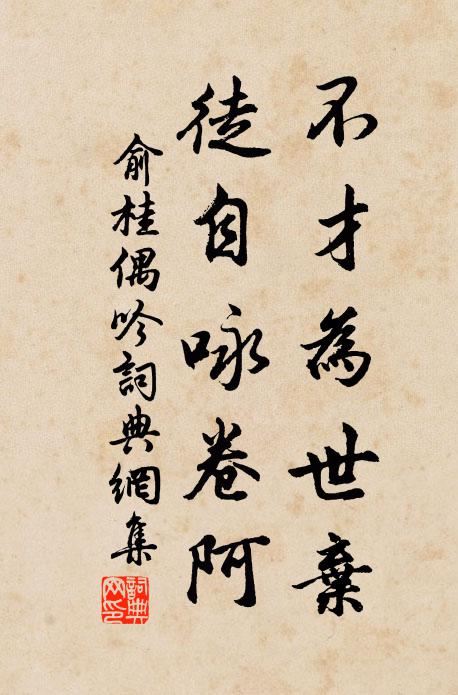 不才為世棄
徒自咏卷阿
俞桂偶吟詞典網集
詞典網印